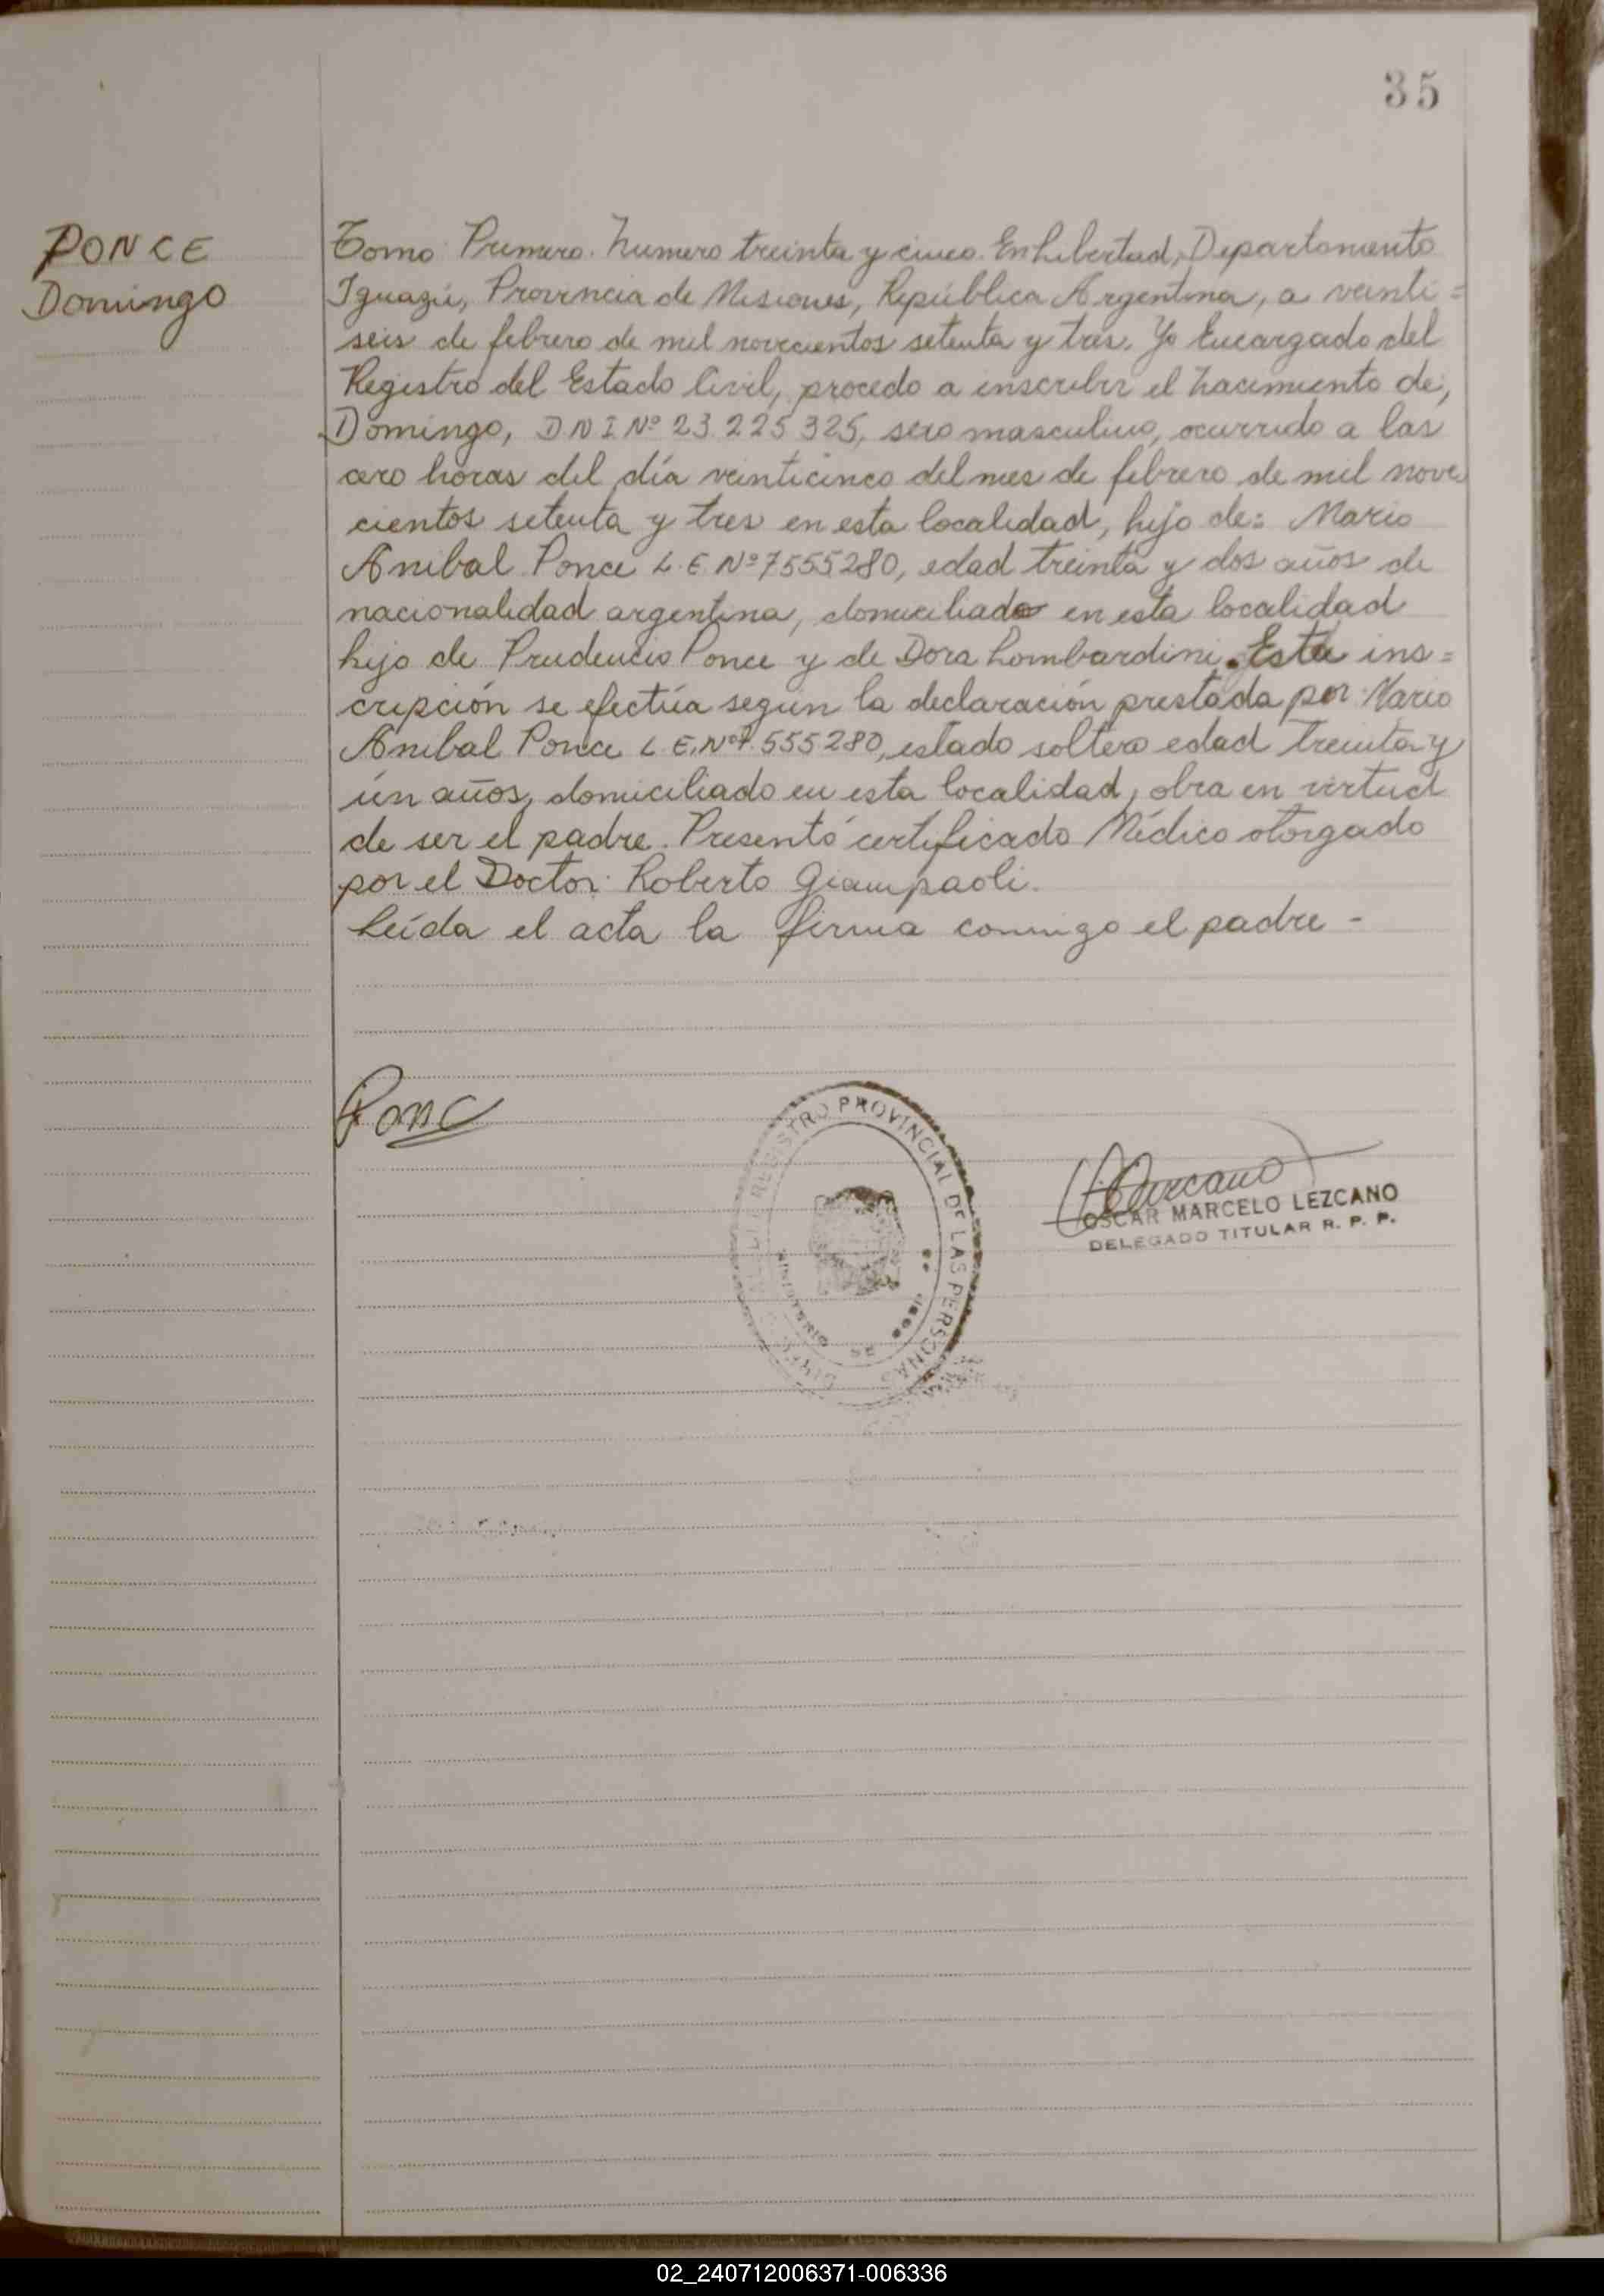 35
PONCE
Domingo
Tomo Primero. Numero treinta y cinco. En Libertad, Departamento
Iguazú, Provincia de Misiones, República Argentina, a veinti=
seis de febrero de mil novecientos setenta y tres. Yo Encargado del
Registro del Estado Civil, procedo a inscribir el Nacimiento de;
Domingo, DNI Nº 23.225325, sexo masculino, ocurrido a las
cero horas del día veinticinco del mes de febrero de mil nove
cientos setenta y tres en esta localidad, hijo de: Mario
Anibal Ponce L.E. Nº 7555280, edad treinta y dos años de
nacionalidad argentina, domiciliado en esta localidad
hijo de Prudencio Ponce y de Dora Lombardini. Esta ins=
cripción se efectúa segun la declaración prestada por Mario
Anibal Ponce L.E. Nº 7.555280, estado soltero edad treinta y
ún años, domiciliado en esta localidad, obra en virtud
de ser el padre. Presentó certificado Médico otorgado
por el Doctor: Roberto Giampaoli.
Leída el acta la firma conmigo el padre -
Ponc
REGISTRO PROVINCIAL DE LAS PERSONAS
MINISTERIO DE
Lezcano
OSCAR MARCELO LEZCANO
DELEGADO TITULAR R. P. P.
02_240712006371-006336